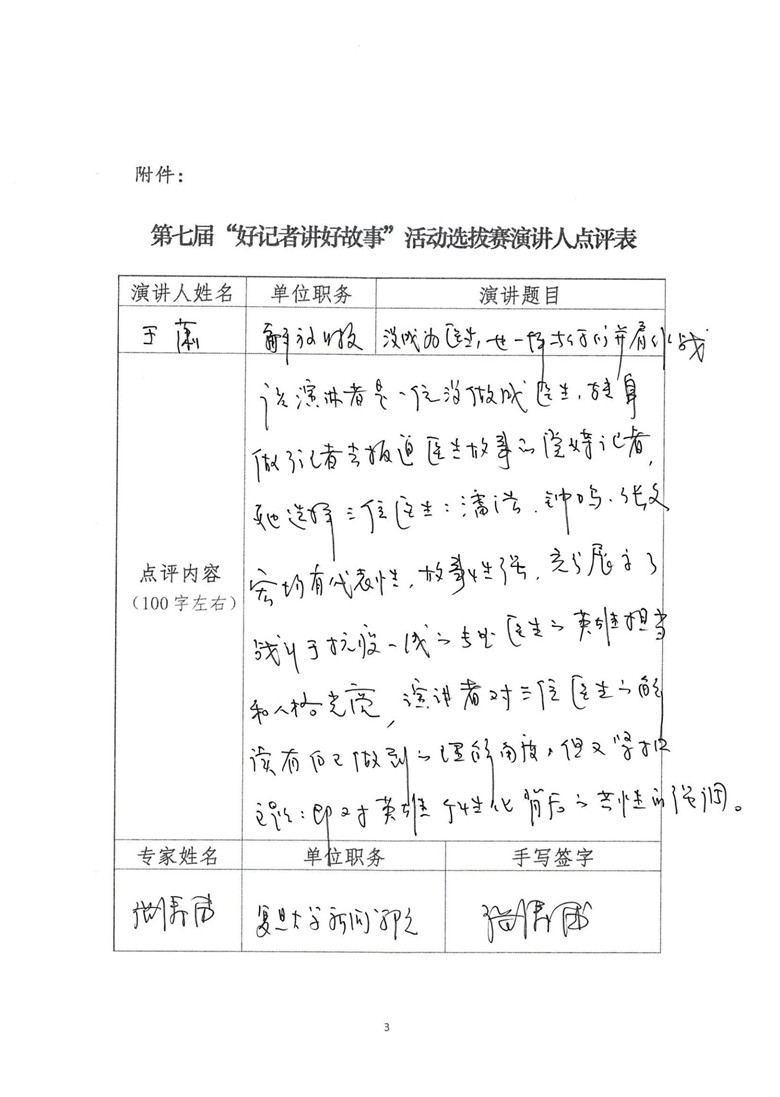 附件：
第七届“好记者讲好故事”活动选拔赛演讲人点评表
演讲人姓名 单位职务 演讲题目
王潇 解放日报 没成为医生，也一样与你们并肩作战
该演讲者是一位没做成医生，转身
做了记者去报道医生故事的党媒记者，
她选择三位医生：潘浩、钟鸣、张文
点评内容
（100字左右）
宏均有代表性，故事性强，充分展示了
战斗于抗疫一线的专业医生的英雄担当
和人格光亮，演讲者对三位医生的解
读有自己做到的理解角度，但又紧扣
主题：即对英雄个性化背后的共性的强调。
专家姓名 单位职务 手写签字
复旦大学新闻学院
3